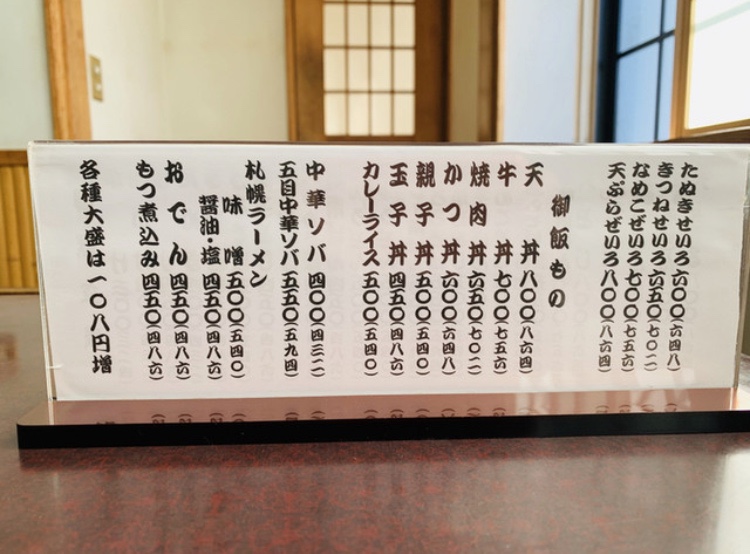 たぬきせいろ六〇〇(六四八)
きつねせいろ六五〇(七〇二)
なめこせいろ七〇〇(七五六)
天ぷらせいろ八〇〇(八六四)
御飯もの
天丼八〇〇(八六四)
牛丼七〇〇(七五六)
焼肉丼六五〇(七〇二)
かつ丼六〇〇(六四八)
親子丼五〇〇(五四〇)
玉子丼四五〇(四八六)
カレーライス五〇〇(五四〇)
中華ソバ四〇〇(四三二)
五目中華ソバ五五〇(五九四)
札幌ラーメン
味噌五〇〇(五四〇)
醤油・塩四五〇(四八六)
おでん四五〇(四八六)
もつ煮込み四五〇(四八六)
各種大盛は一〇八円増